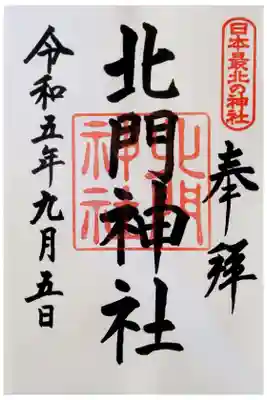 日本最北の神社
奉拜
北門神社
北門神社
令和五年九月五日